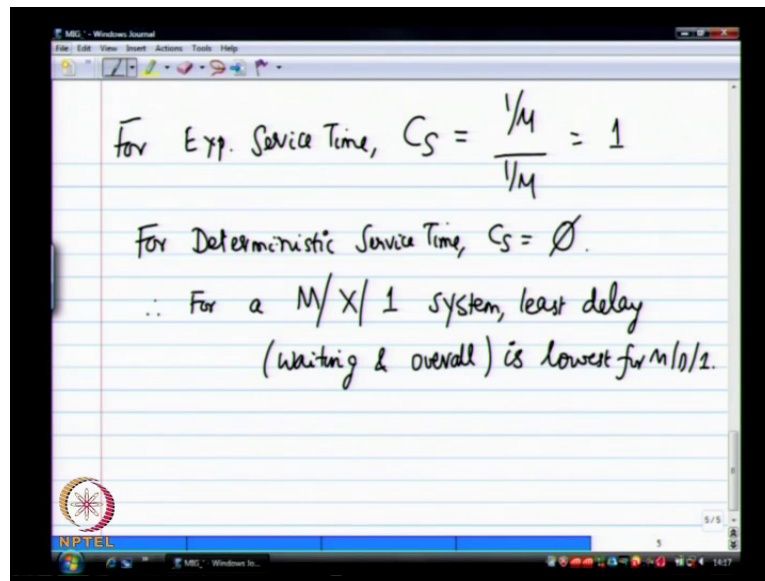 MIG_* - Windows Journal
File Edit View Insert Actions Tools Help
For Exp. Service Time, CS = 1/μ / 1/μ = 1
For Deterministic Service Time, CS = Ø.
∴ For a M/X/1 system, least delay
(waiting & overall) is lowest for M/D/1.
5/5
5
NPTEL
MIG_* - Windows Jo...
14:17